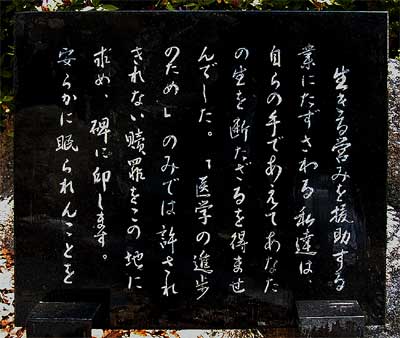 生きる営みを援助する
業にたずさわる私達は、
自らの手であえてあなた
の生を断たざるを得ませ
んでした。「医学の進歩
のため」のみでは許され
きれない贖罪をこの地に
求め、碑に印します。
安らかに眠られんことを